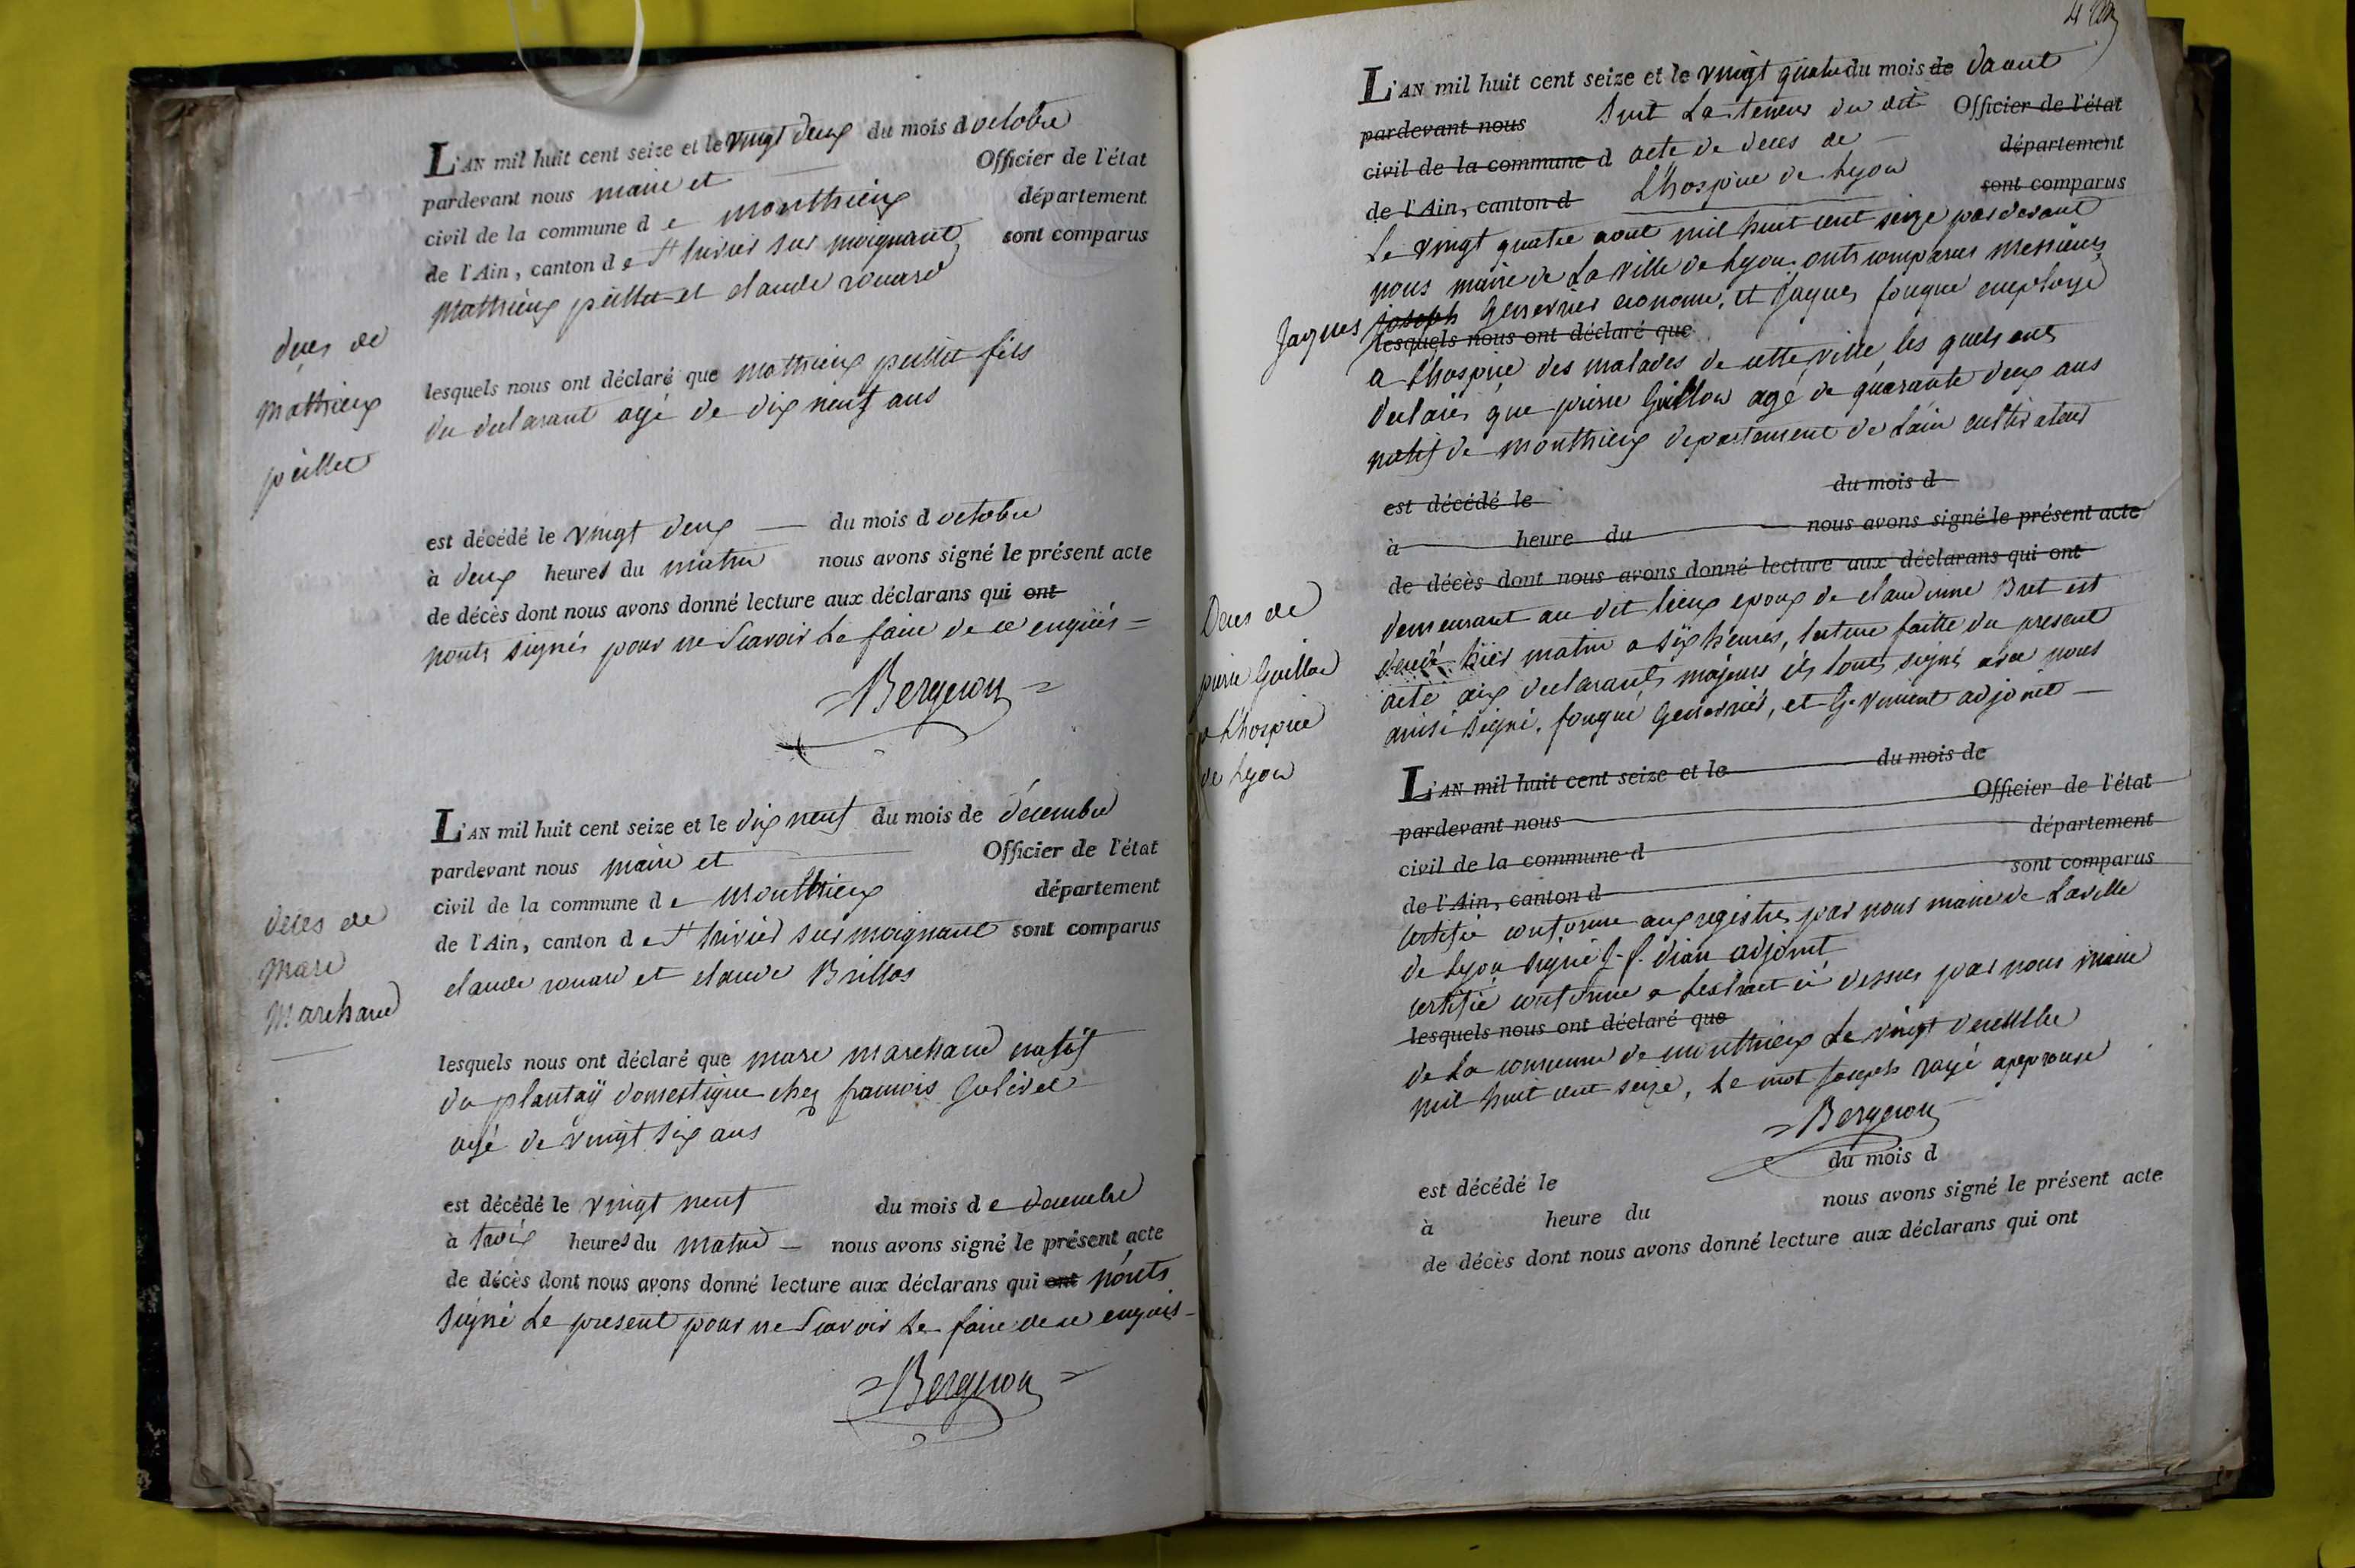 L'AN mil huit cent seize et le vingt deux du mois d octobre
pardevant nous maire et Officier de l'état
civil de la commune d e monthieux département
de l'Ain, canton d e St trivier sur moignant sont comparus
mathieux peillet et claude rouard
deces de
mathieux
peillet
lesquels nous ont déclaré que mathieux peillet fils
du declarant agé de dix neuf ans
est décédé le vingt deux du mois d octobre
à deux heures du matin nous avons signé le présent acte
de décès dont nous avons donné lecture aux déclarans qui ont
nonts signés pour ne scavoir le faire de ce enquiés =
Bergeron
L'AN mil huit cent seize et le dix neuf du mois de décembre
pardevant nous maire et Officier de l'état
civil de la commune d e monthieux département
de l'Ain, canton d e St trivier sur moignant sont comparus
claude rouard et claude Brillos
deces de
marc
marchand
lesquels nous ont déclaré que marc marchand natif
du plantaÿ domestique chez francois
agé de vingt six ans
est décédé le vingt neuf du mois d e decembre
à trois heures du matin nous avons signé le présent acte
de décès dont nous avons donné lecture aux déclarans qui ont nonts
signé le present pour ne scavoir le faire de ce enquis -
Bergeron
L'AN mil huit cent seize et le vingt quatre du mois de daout
pardevant nous suit la teneur du dit Officier de l'état
civil de la commune d acte de deces de département
de l'Ain, canton d l'hospice de Lyon sont comparus
Le vingt quatre aout mil huit cent seize pardevant
nous maire de la ville de Lyon onts comparus messieurs
Jaques joseph Genevrier econome, et Jaques fouque employé
lesquels nous ont déclaré que
a l'hospice des malades de cette ville, les quels ont
declarés que pierre Guillon agé de quarante deux ans
natif de monthieux departement de Lain cultivateur
est décédé le du mois d
à heure du nous avons signé le présent acte
de décès dont nous avons donné lecture aux déclarans qui ont
Deces de
pierre Guillon
a l'hospice
de Lyon
demeurant au dit lieux epoux de claudinne Bret est
decedé hier matin a six heures, lecture faitte du present
acte aux declarants majeurs ils lonts signés avec nous
ainsi signé, fouque Genevrier, et G. vincent adjoint —
L'AN mil huit cent seize et le du mois de
pardevant nous Officier de l'état
civil de la commune d département
de l'Ain, canton d sont comparus
certifié conforme aux registres par nous maire de Laville
de Lyon signé adjoint
certifié conforme a lextrait ci dessus par nous maire
lesquels nous ont déclaré que
de la commune de monthieux le vingt decembre
mil huit cent seize, le mot joseph rayé approuvé
Bergeron
est décédé le du mois d
à heure du nous avons signé le présent acte
de décès dont nous avons donné lecture aux déclarans qui ont